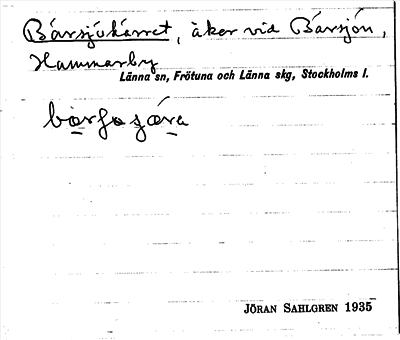 Bårsjökärret, åker vid Bårsjön,
Hammarby
Länna sn, Frötuna och Länna skg, Stockholms l.
JÖRAN SAHLGREN 1935